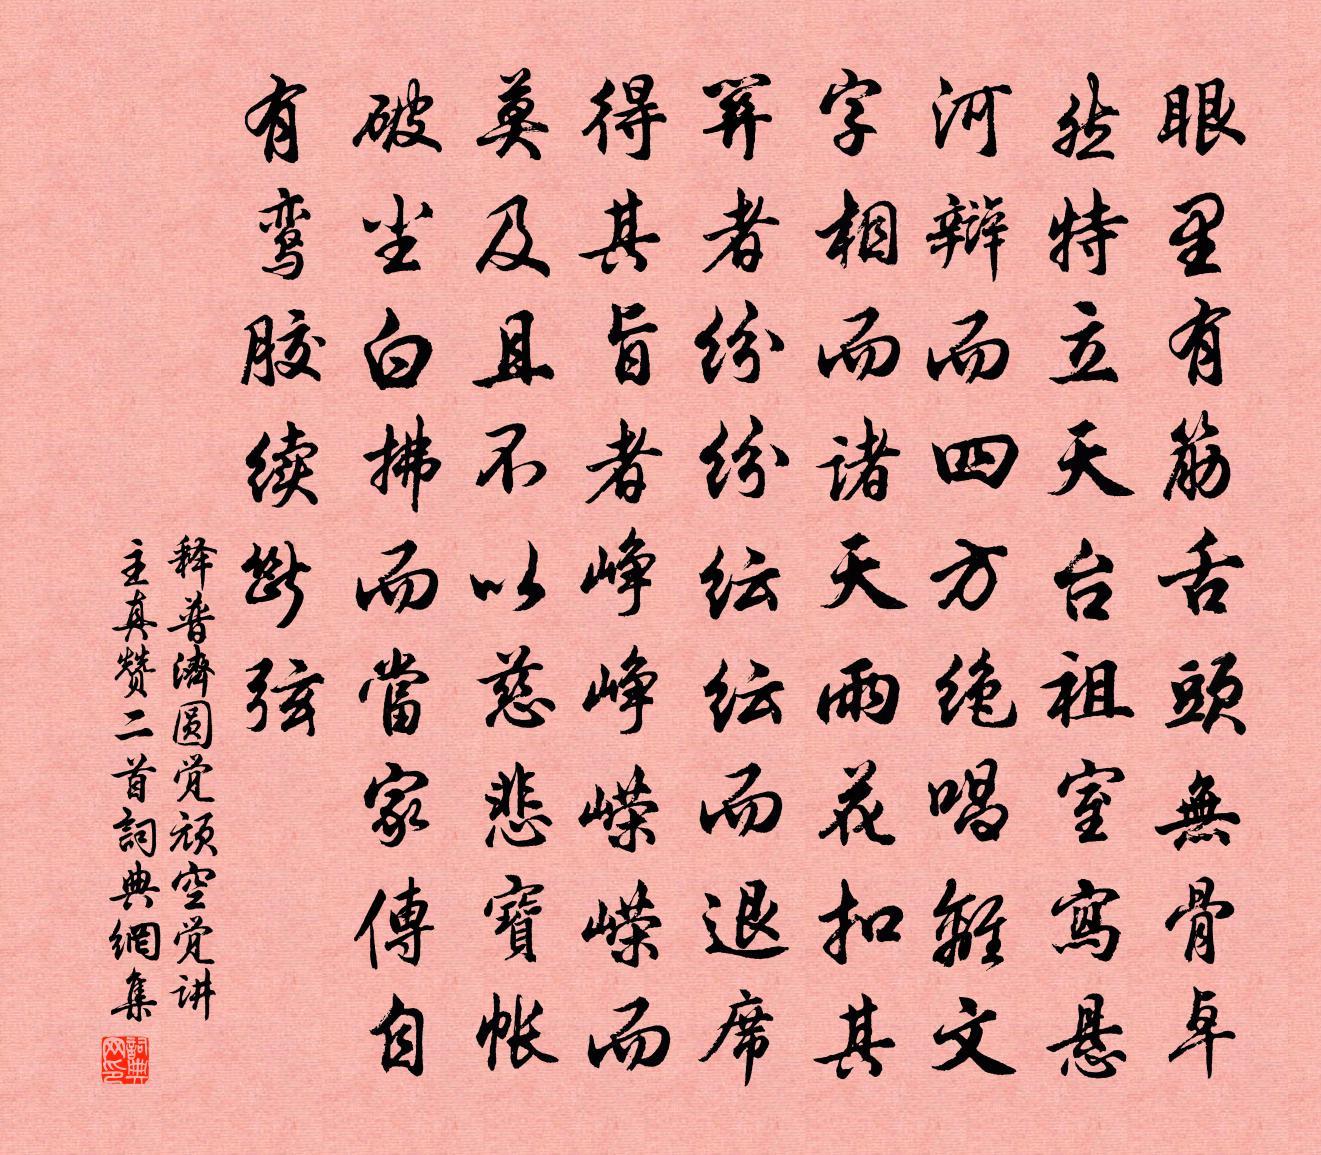 眼里有筋舌頭無骨卓
然特立天台祖室寫悬
河辯而四方绝唱離文
字相而诸天雨花扣其
者纷纷纭纭而退席
得其旨者峥峥嵘嵘而
莫及且不以慈悲寶帐
破尘白拂而當家傳自
有鸾胶续斷弦
释普濟圆觉顽空觉讲
主真赞二首詞典網集
詞典网印